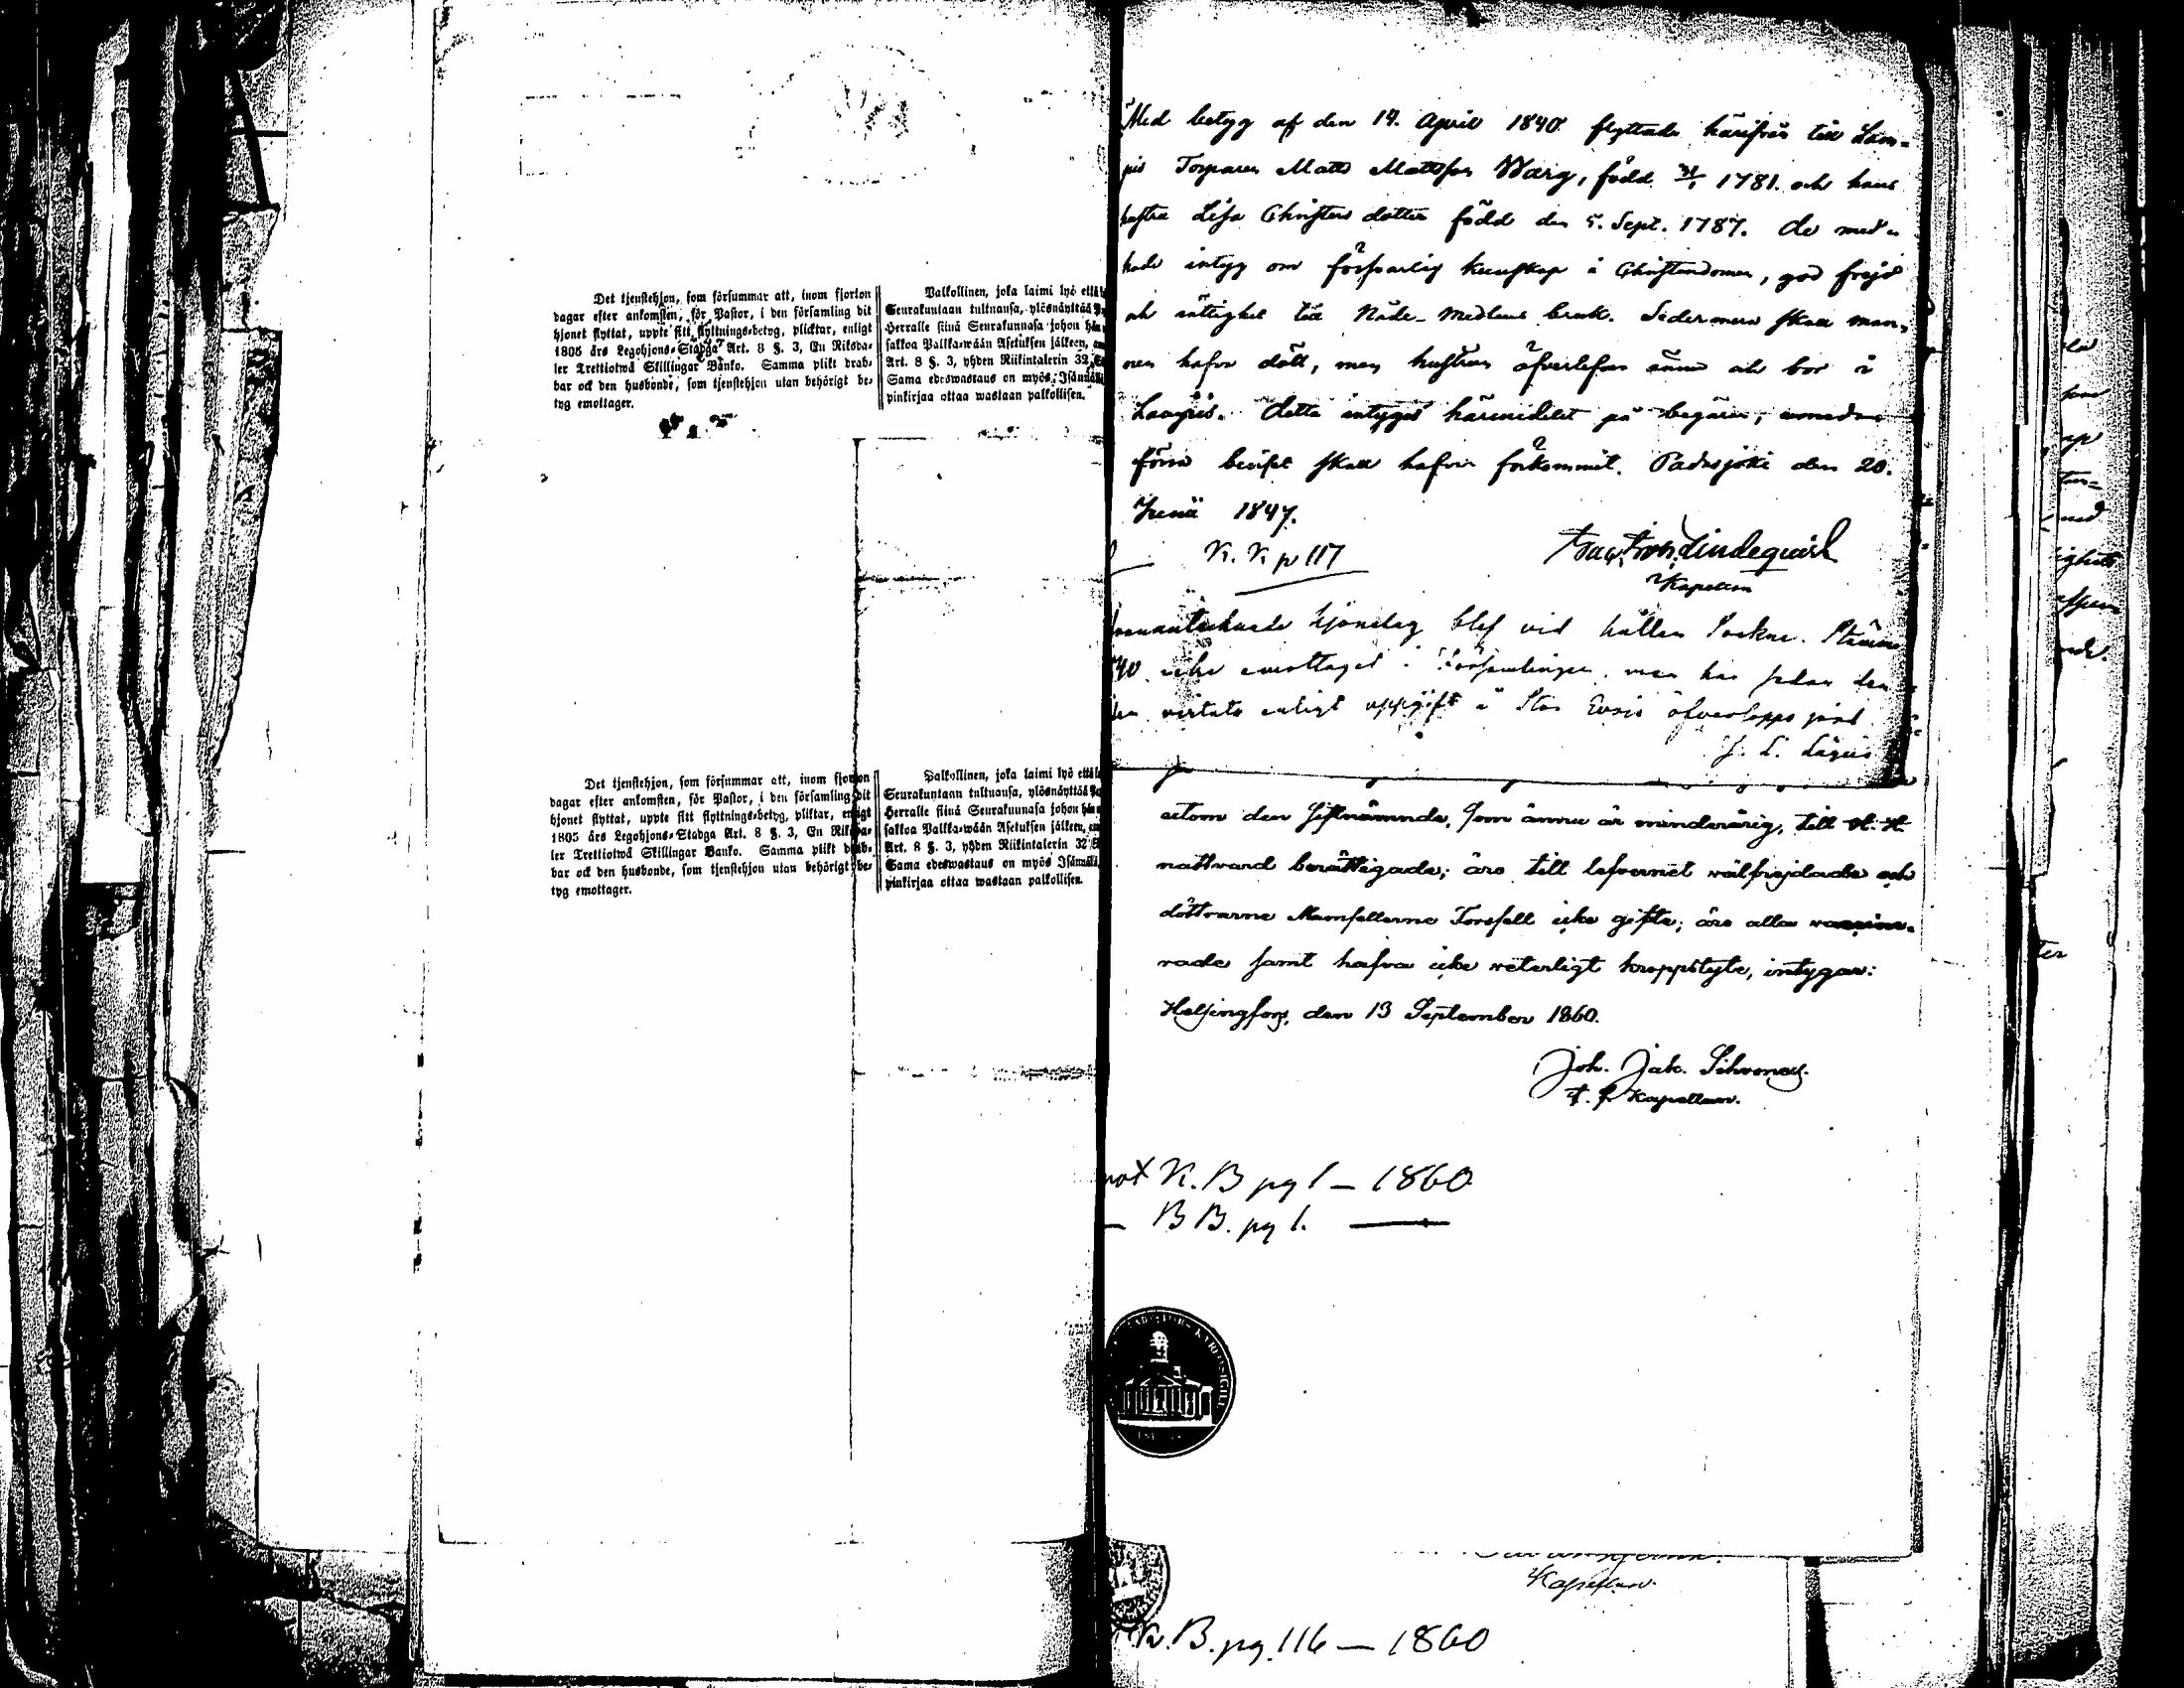 Det tjenstehjon, som försummar att, inom fjorton
dagar efter ankomsten, för Pastor, i den församling dit
hjonet flyttat, uppte sitt flyttnings-betyg, pliktar, enligt
1805 års Legohjons-Stadga Art. 8 §. 3, En Riksda-
ler Trettiotwå Skillingar Banko. Samma plikt drab-
bar ock den husbonde, som tjenstehjon utan behörigt be-
tyg emottager.
Palkollinen, joka laimi lyö että
Seurakuntaan tultuansa, ylösnäyttää
Herralle siinä Seurakunnasa johon hän
sakkoa Palkka-wään Asetuksen jälkeen,
Art. 8 §. 3, yhden Riikintalerin 32
Sama edeswastaus on myös Isännällä
pinkirjaa ottaa wastaan palkollisen.
Det tjenstehjon, som försummar att, inom fjorton
dagar efter ankomsten, för Pastor, i den församling dit
hjonet flyttat, uppte sitt flyttnings-betyg, pliktar, enligt
1805 års Legohjons-Stadga Art. 8 §. 3, En Riksda-
ler Trettiotwå Skillingar Banko. Samma plikt drab-
bar ock den husbonde, som tjenstehjon utan behörigt be-
tyg emottager.
Palkollinen, joka laimi lyö että
Seurakuntaan tultuansa, ylösnäyttää
Herralle siinä Seurakunnasa johon hän
sakkoa Palkka-wään Asetuksen jälkeen,
Art. 8 §. 3, yhden Riikintalerin 32
Sama edeswastaus on myös Isännällä
pinkirjaa ottaa wastaan palkollisen.
Med betyg af den 14. April 1840 flyttade härifrån till Lam-
pis Torparen Matts Mattsson Warg, född 31/1 1781. och hans
hustru Lisa Christers dotter född den 5. Sept. 1787. De med-
hade intyg om försvarlig kunskap i Christendomen, god frejd
och rättighet till Nåde-Medlens bruk. Sedermera skall man-
nen hafva dött, men hustrun öfverlefver ännu och bor i
Lampis. Detta intygas härmedelst på begäran, emedan
förra beviset skall hafva förkommit. Padasjoki den 20.
Junii 1847.
K. K. p 117
Lindequist
Kapellan
hjonelag blef vid hållen Sockne.
40 icke emottaget i Församlingen, men har sedan den
vistats enligt uppgift i Stor Evois öfverlopps jord
J. L. Lagus
utom den sistnämnde, som ännu är minderårig, till H. H.
nattvard berättigade; äro till lefvernet välfrejdade och
döttrarne Mamsellerne Forsfell icke gifta; äro alla vaccine-
rade samt hafva icke veterligt kroppslyte, intygar:
Helsingfors, den 13 September 1860.
Joh. Jak. Sihvonen.
t. f. Kapellan.
not K. B pg 1 — 1860
B B. pg 1. —
Kapellan.
K. B. pg. 116 — 1860